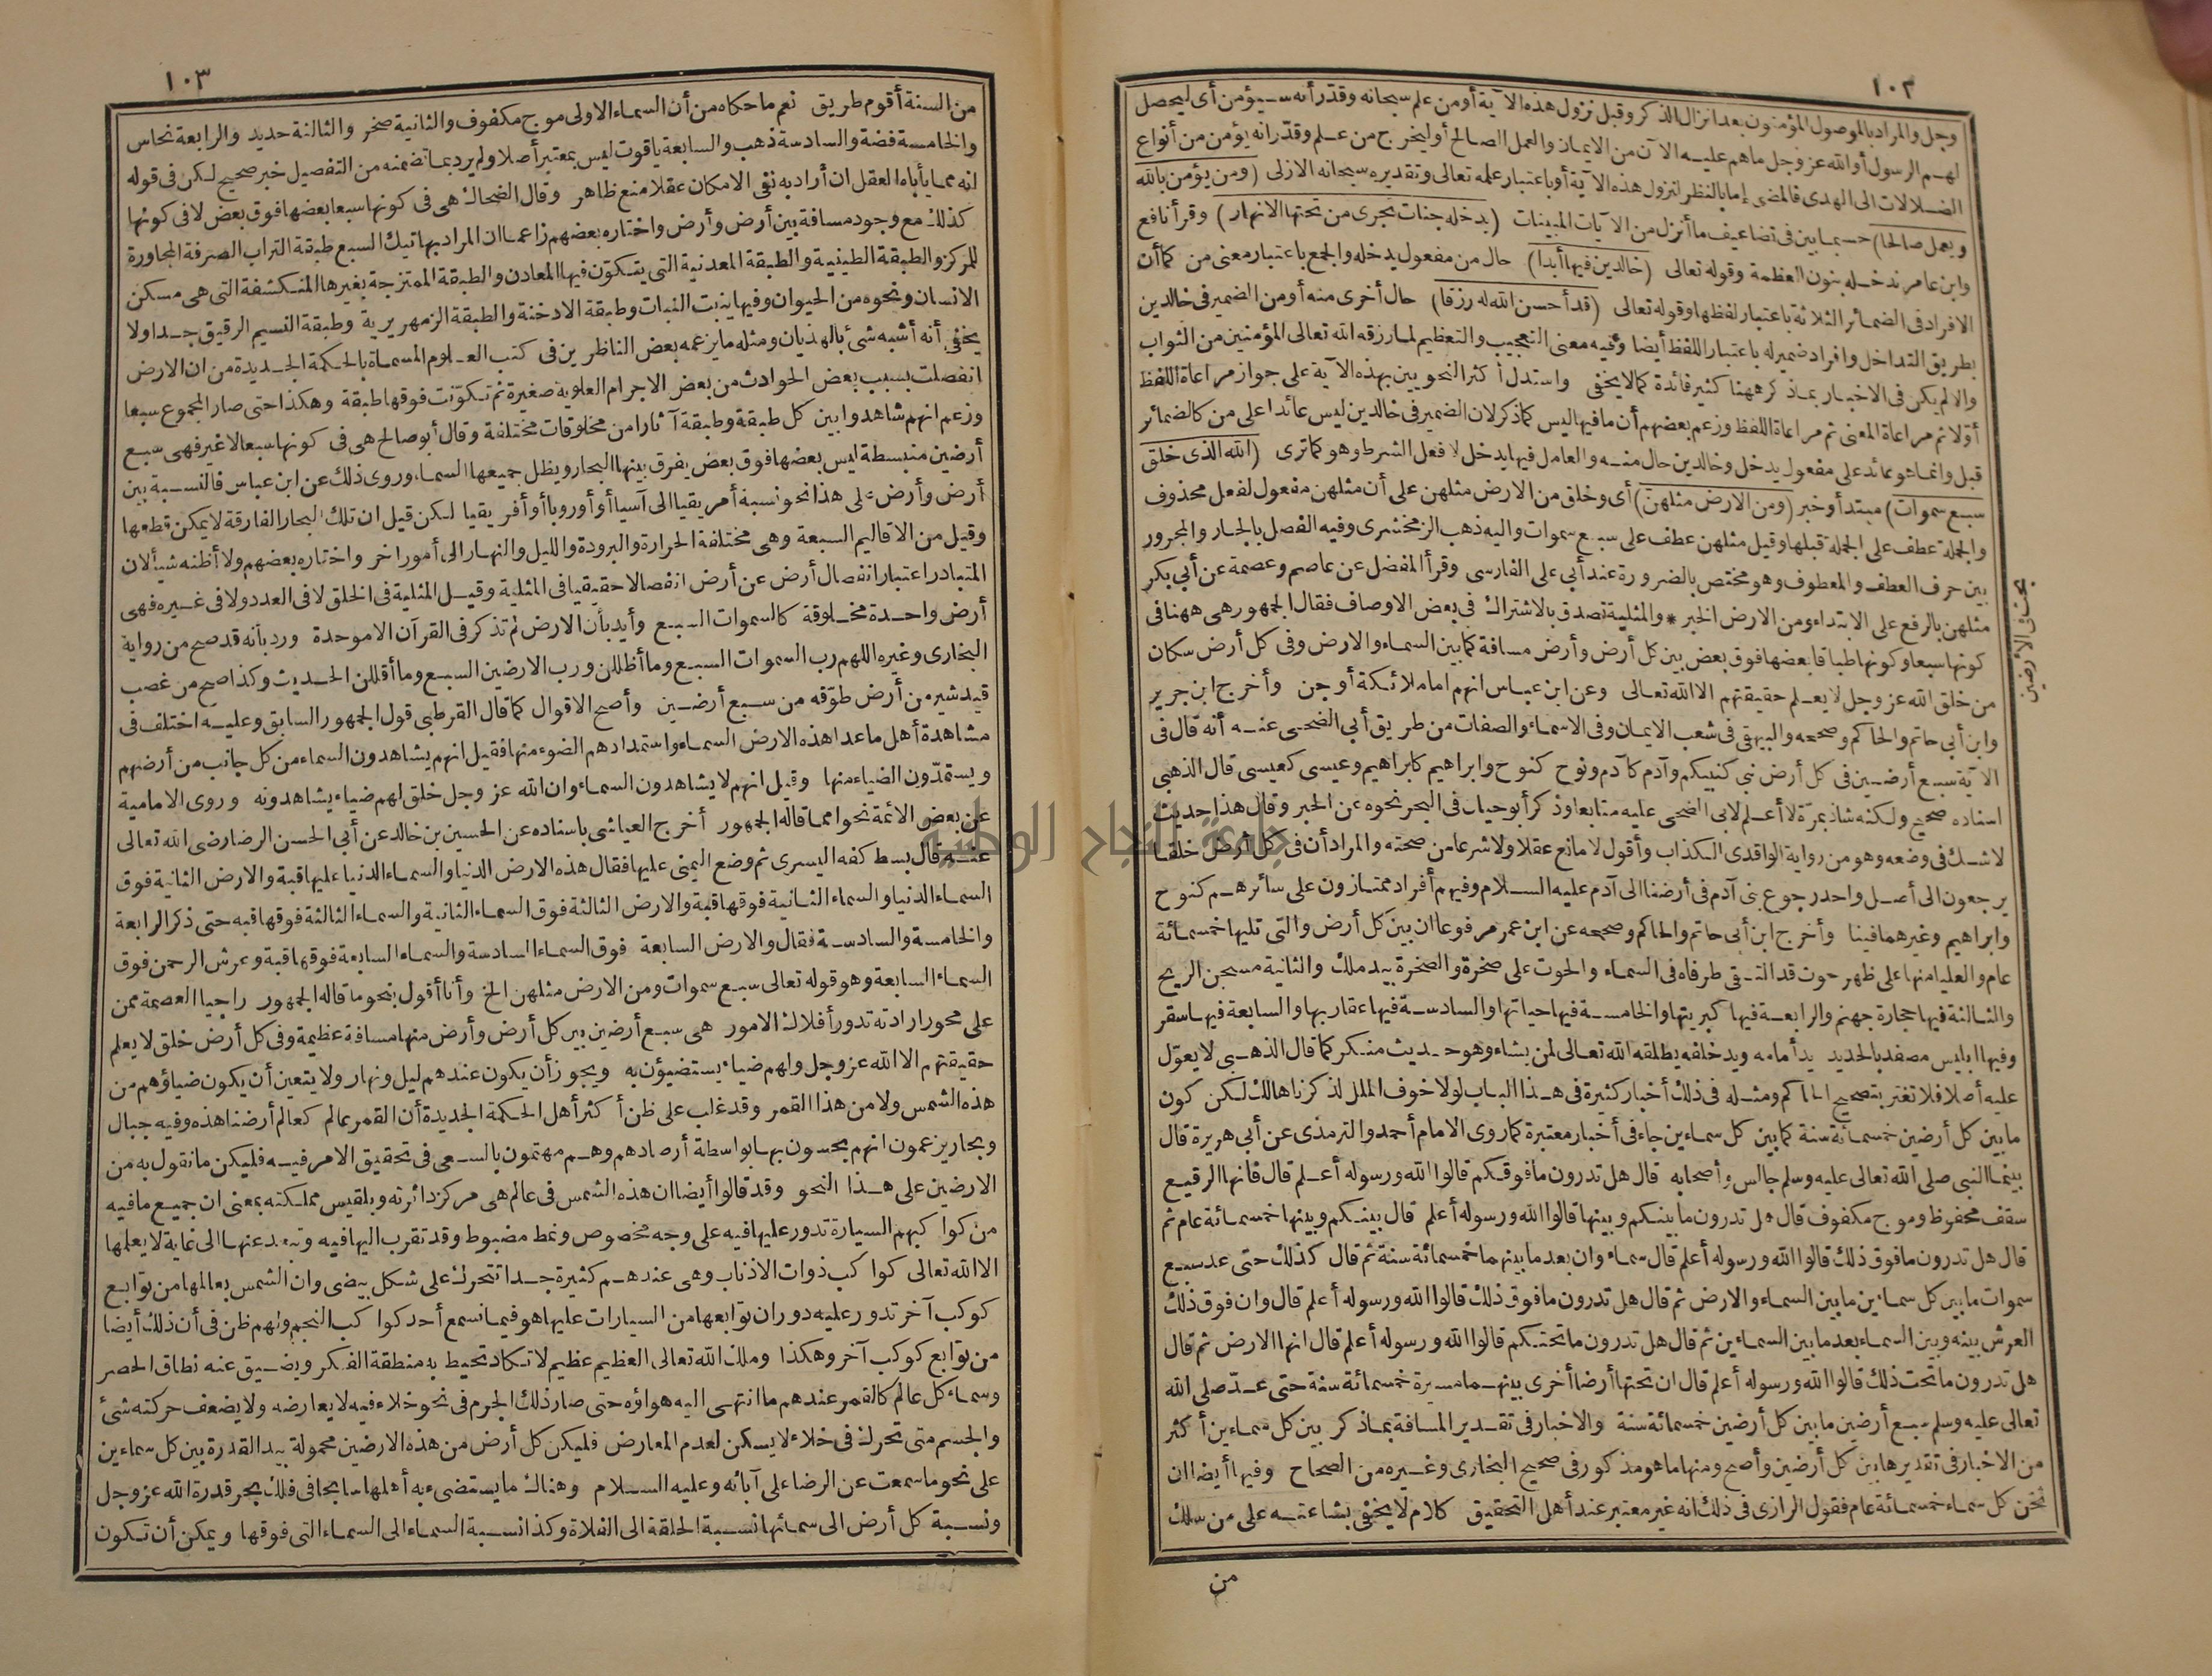 ١٠٢
وجل والمراد بالموصول المؤمنون بعد انزال الذكر وقبل نزول هذه الآية أو من علم سبحانه وقدر أنه سيؤمن أى ليحصل
لهم الرسول أو الله عز وجل ما هم عليه الآن من الايمان والعمل الصالح أو ليخرج من علم وقدّر انه يؤمن من أنواع
الضلالات الى الهدى فالمضى إما بالنظر لنزول هذه الآية أو باعتبار علمه تعالى وتقديره سبحانه الازلى (ومن يؤمن بالله
ويعمل صالحا) حسبما بين فى تضاعيف ما أنزل من الآيات المبينات (يدخله جنات تجرى من تحتها الانهار) وقرأ نافع
وابن عامر ندخله بنون العظمة وقوله تعالى (خالدين فيها أبدا) حال من مفعول يدخله والجمع باعتبار معنى من كما أن
الافراد فى الضمائر الثلاثة باعتبار لفظها وقوله تعالى (قد أحسن الله له رزقا) حال أخرى منه أو من الضمير فى خالدين
بطريق التداخل وافراد ضمير له باعتبار اللفظ أيضا وفيه معنى التعجيب والتعظيم لما رزقه الله تعالى المؤمنين من الثواب
والا لم يكن فى الاخبار بما ذكر ههنا كثير فائدة كما لا يخفى واستدل أكثر النحويين بهذه الآية على جواز مراعاة اللفظ
أوّلا ثم مراعاة المعنى ثم مراعاة اللفظ وزعم بعضهم أن ما فيها ليس كما ذكر لان الضمير فى خالدين ليس عائدا على من كالضمائر
قبل وانما هو عائد على مفعول يدخل وخالدين حال منه والعامل فيها يدخل لا فعل الشرط وهو كما ترى (الله الذى خلق
سبع سموات) مبتدأ وخبر (ومن الارض مثلهن) أى وخلق من الارض مثلهن على أن مثلهن مفعول لفعل محذوف
والجملة عطف على الجملة قبلها وقيل مثلهن عطف على سبع سموات واليه ذهب الزمخشرى وفيه الفصل بالجار والمجرور
بين حرف العطف والمعطوف وهو مختص بالضرورة عند أبى على الفارسى وقرأ المفضل عن عاصم وعصمة عن أبى بكر
مثلهن بالرفع على الابتداء ومن الارض الخبر * والمثلية تصدق بالاشتراك فى بعض الاوصاف فقال الجمهور هى ههنا فى
كونها سبعا وكونها طباقا بعضها فوق بعض بين كل أرض وأرض مسافة كما بين السماء والارض وفى كل أرض سكان
من خلق الله عز وجل لا يعلم حقيقتهم الا الله تعالى وعن ابن عباس انهم اما ملائكة أو جن وأخرج ابن جرير
وابن أبى حاتم والحاكم وصححه والبيهقى فى شعب الايمان وفى الاسماء والصفات من طريق أبى الضحى عنه أنه قال فى
الآية سبع أرضين فى كل أرض نبى كنبيكم وآدم كآدم ونوح كنوح وابراهيم كابراهيم وعيسى كعيسى قال الذهبى
اسناده صحيح ولكنه شاذ بمرّة لا أعلم لابى الضحى عليه متابعا وذكر أبو حيان فى البحر نحوه عن الحبر وقال هذا حديث
لا شك فى وضعه وهو من رواية الواقدى الكذاب وأقول لا مانع عقلا ولا شرعا من صحته والمراد أن فى كل أرض خلقا
يرجعون الى أصل واحد رجوع بنى آدم فى أرضنا الى آدم عليه السلام وفيهم أفراد ممتازون على سائرهم كنوح
وابراهيم وغيرهما فينا وأخرج ابن أبى حاتم والحاكم وصححه عن ابن عمر مرفوعا ان بين كل أرض والتى تليها خمسمائة
عام والعليا منها على ظهر حوت قد التقى طرفاه فى السماء والحوت على صخرة والصخرة بيد ملك والثانية مسجن الريح
والثالثة فيها حجارة جهنم والرابعة فيها كبريتها والخامسة فيها حياتها والسادسة فيها عقاربها والسابعة فيها سقر
وفيها ابليس مصفد بالحديد يد أمامه ويد خلفه يطلقه الله تعالى لمن يشاء وهو حديث منكر كما قال الذهبى لا يعوّل
عليه أصلا فلا تغتر بتصحيح الحاكم ومثله فى ذلك أخبار كثيرة فى هذا الباب لولا خوف الملل لذكرناها لك لكن كون
ما بين كل أرضين خمسمائة سنة كما بين كل سماءين جاء فى أخبار معتبرة كما روى الامام أحمد والترمذى عن أبى هريرة قال
بينما النبى صلى الله تعالى عليه وسلم جالس وأصحابه قال هل تدرون ما فوقكم قالوا الله ورسوله أعلم قال فانها الرقيع
سقف محفوظ وموج مكفوف قال هل تدرون ما بينكم وبينها قالوا الله ورسوله أعلم قال بينكم وبينها خمسمائة عام ثم
قال هل تدرون ما فوق ذلك قالوا الله ورسوله أعلم قال سماء وان بعد ما بينهما خمسمائة سنة ثم قال كذلك حتى عد سبع
سموات ما بين كل سماءين ما بين السماء والارض ثم قال هل تدرون ما فوق ذلك قالوا الله ورسوله أعلم قال وان فوق ذلك
العرش بينه وبين السماء بعد ما بين السماءين ثم قال هل تدرون ما تحتكم قالوا الله ورسوله أعلم قال انها الارض ثم قال
هل تدرون ما تحت ذلك قالوا الله ورسوله أعلم قال ان تحتها أرضا أخرى بينهما مسيرة خمسمائة سنة حتى عدّ صلى الله
تعالى عليه وسلم سبع أرضين ما بين كل أرضين خمسمائة سنة والاخبار فى تقدير المسافة بما ذكر بين كل سماءين أكثر
من الاخبار فى تقديرها بين كل أرضين وأصح ومنها ما هو مذكور فى صحيح البخارى وغيره من الصحاح وفيها أيضا ان
ثخن كل سماء خمسمائة عام فقول الرازى فى ذلك انه غير معتبر عند أهل التحقيق كلام لا يخفى بشاعته على من سلك
من
مبحث الارضين
١٠٣
من السنة أقوم طريق نعم ما حكاه من أن السماء الاولى موج مكفوف والثانية صخر والثالثة حديد والرابعة نحاس
والخامسة فضة والسادسة ذهب والسابعة ياقوت ليس بمعتبر أصلا ولم يرد بما تضمنه من التفصيل خبر صحيح لكن فى قوله
انه مما يأباه العقل ان أراد به نفى الامكان عقلا منع ظاهر وقال الضحاك هى فى كونها سبعا بعضها فوق بعض لا فى كونها
كذلك مع وجود مسافة بين أرض وأرض واختاره بعضهم زاعما ان المراد بهاتيك السبع طبقة التراب الصرفة المجاورة
للمركز والطبقة الطينية والطبقة المعدنية التى يتكوّن فيها المعادن والطبقة الممتزجة بغيرها المنكشفة التى هى مسكن
الانسان ونحوه من الحيوان وفيها ينبت النبات وطبقة الادخنة والطبقة الزمهريرية وطبقة النسيم الرقيق جدا ولا
يخفى أنه أشبه شئ بالهذيان ومثله ما يزعمه بعض الناظرين فى كتب العلوم المسماة بالحكمة الجديدة من ان الارض
انفصلت بسبب بعض الحوادث من بعض الاجرام العلوية صغيرة ثم تكوّنت فوقها طبقة وهكذا حتى صار المجموع سبعا
وزعم انهم شاهدوا بين كل طبقة وطبقة آثارا من مخلوقات مختلفة وقال أبو صالح هى فى كونها سبعا لا غير فهى سبع
أرضين منبسطة ليس بعضها فوق بعض يفرق بينها البحار ويظل جميعها السماء وروى ذلك عن ابن عباس فالنسبة بين
أرض وأرض على هذا نحو نسبة أمريقيا الى آسيا أو أوروبا أو أفريقيا لكن قيل ان تلك البحار الفارقة لا يمكن قطعها
وقيل من الاقاليم السبعة وهى مختلفة الحرارة والبرودة والليل والنهار الى أمور اخر واختاره بعضهم ولا أظنه شيأ لان
المتبادر اعتبار انفصال أرض عن أرض انفصالا حقيقيا فى المثلية وقيل المثلية فى الخلق لا فى العدد ولا فى غيره فهى
أرض واحدة مخلوقة كالسموات السبع وأيد بأن الارض لم تذكر فى القرآن الا موحدة ورد بأنه قد صح من رواية
البخارى وغيره اللهم رب السموات السبع وما أظللن ورب الارضين السبع وما أقللن الحديث وكذا صح من غصب
قيد شبر من أرض طوّقه من سبع أرضين وأصح الاقوال كما قال القرطبى قول الجمهور السابق وعليه اختلف فى
مشاهدة أهل ما عدا هذه الارض السماء واستمدادهم الضوء منها فقيل انهم يشاهدون السماء من كل جانب من أرضهم
ويستمدّون الضياء منها وقيل انهم لا يشاهدون السماء وان الله عز وجل خلق لهم ضياء يشاهدونه وروى الامامية
عن بعض الائمة نحوا مما قاله الجمهور أخرج العياشى باسناده عن الحسين بن خالد عن أبى الحسن الرضا رضى الله تعالى
عنه قال بسط كفه اليسرى ثم وضع اليمنى عليها فقال هذه الارض الدنيا والسماء الدنيا عليها قبة والارض الثانية فوق
السماء الدنيا والسماء الثانية فوقها قبة والارض الثالثة فوق السماء الثانية والسماء الثالثة فوقها قبه حتى ذكر الرابعة
والخامسة والسادسة فقال والارض السابعة فوق السماء السادسة والسماء السابعة فوقها قبة وعرش الرحمن فوق
السماء السابعة وهو قوله تعالى سبع سموات ومن الارض مثلهن الخ وأنا أقول بنحو ما قاله الجمهور راجيا العصمة ممن
على محور ارادته تدور أفلاك الامور هى سبع أرضين بين كل أرض وأرض منها مسافة عظيمة وفى كل أرض خلق لا يعلم
حقيقتهم الا الله عز وجل ولهم ضياء يستضيؤن به ويجوز أن يكون عندهم ليل ونهار ولا يتعين أن يكون ضياؤهم من
هذه الشمس ولا من هذا القمر وقد غلب على ظن أكثر أهل الحكمة الجديدة أن القمر عالم كعالم أرضنا هذه وفيه جبال
وبحار يزعمون انهم يحسون بها بواسطة أرصادهم وهم مهتمون بالسعى فى تحقيق الامر فيه فليكن ما نقول به من
الارضين على هذا النحو وقد قالوا أيضا ان هذه الشمس فى عالم هى مركز دائرته وبلقيس مملكته بمعنى ان جميع ما فيه
من كواكبهم السيارة تدور عليها فيه على وجه مخصوص ونمط مضبوط وقد تقرب اليها فيه وتبعد عنها الى غاية لا يعلمها
الا الله تعالى كواكب ذوات الاذناب وهى عندهم كثيرة جدا تتحرك على شكل بيضى وان الشمس بعالمها من توابع
كوكب آخر تدور عليه دوران توابعها من السيارات عليها هو فيما نسمع أحد كواكب النجم ولهم ظن فى أن ذلك أيضا
من توابع كوكب آخر وهكذا وملك الله تعالى العظيم عظيم لا تكاد تحيط به منطقة الفكر ويضيق عنه نطاق الحصر
وسماء كل عالم كالقمر عندهم ما انتهى اليه هواؤه حتى صار ذلك الجرم فى نحو خلاء فيه لا يعارضه ولا يضعف حركته شئ
والجسم متى تحرك فى خلاء لا يسكن لعدم المعارض فليكن كل أرض من هذه الارضين محمولة بيد القدرة بين كل سماءين
على نحو ما سمعت عن الرضا على آبائه وعليه السلام وهناك ما يستضىء به أهلها سابحا فى فلك بحر قدرة الله عز وجل
ونسبة كل أرض الى سمائها نسبة الحلقة الى الفلاة وكذا نسبة السماء الى السماء التى فوقها ويمكن أن تكون
جامعة النجاح الوطنية